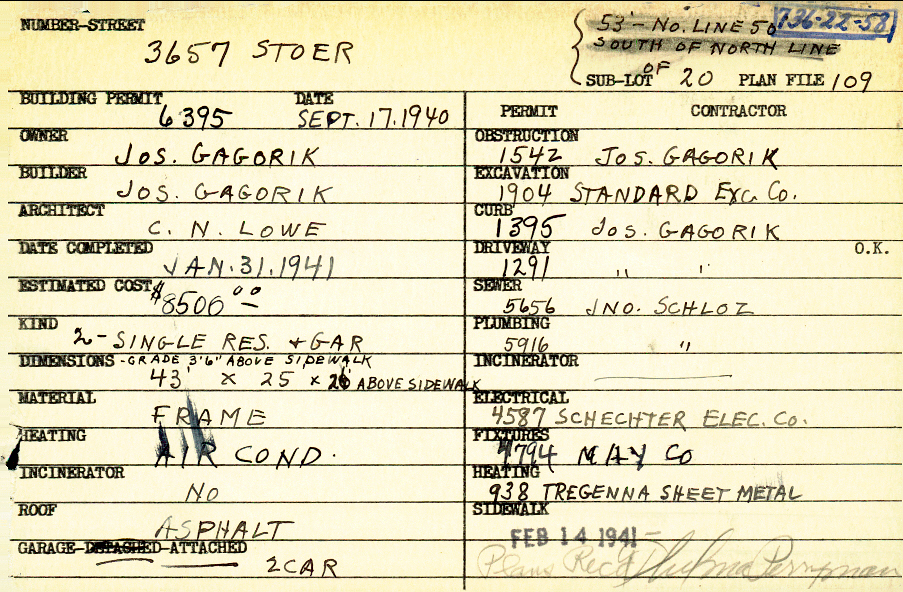 NUMBER-STREET
3657 STOER
53' - NO. LINE 50
736-22-58
SOUTH OF NORTH LINE
OF
SUB-LOT 20 PLAN FILE 109
BUILDING PERMIT DATE
6395 SEPT. 17. 1940
OWNER
JOS. GAGORIK
BUILDER
JOS. GAGORIK
ARCHITECT
C. N. LOWE
DATE COMPLETED
JAN. 31. 1941
ESTIMATED COST
$8500 00
KIND
2- SINGLE RES. + GAR
DIMENSIONS - GRADE 3'6" ABOVE SIDEWALK
43' x 25 x 26' ABOVE SIDEWALK
MATERIAL
FRAME
HEATING
AIR COND.
INCINERATOR
NO
ROOF
ASPHALT
GARAGE-DETACHED-ATTACHED
2 CAR
PERMIT CONTRACTOR
OBSTRUCTION
1542 JOS. GAGORIK
EXCAVATION
1904 STANDARD EXC. CO.
CURB
1395 JOS. GAGORIK
DRIVEWAY O.K.
1291 " "
SEWER
5656 JNO. SCHLOZ
PLUMBING
5916 "
INCINERATOR
ELECTRICAL
4587 SCHECHTER ELEC. CO.
FIXTURES
4794 MAY CO
HEATING
938 TREGENNA SHEET METAL
SIDEWALK
FEB 14 1941
Plans Rec'd